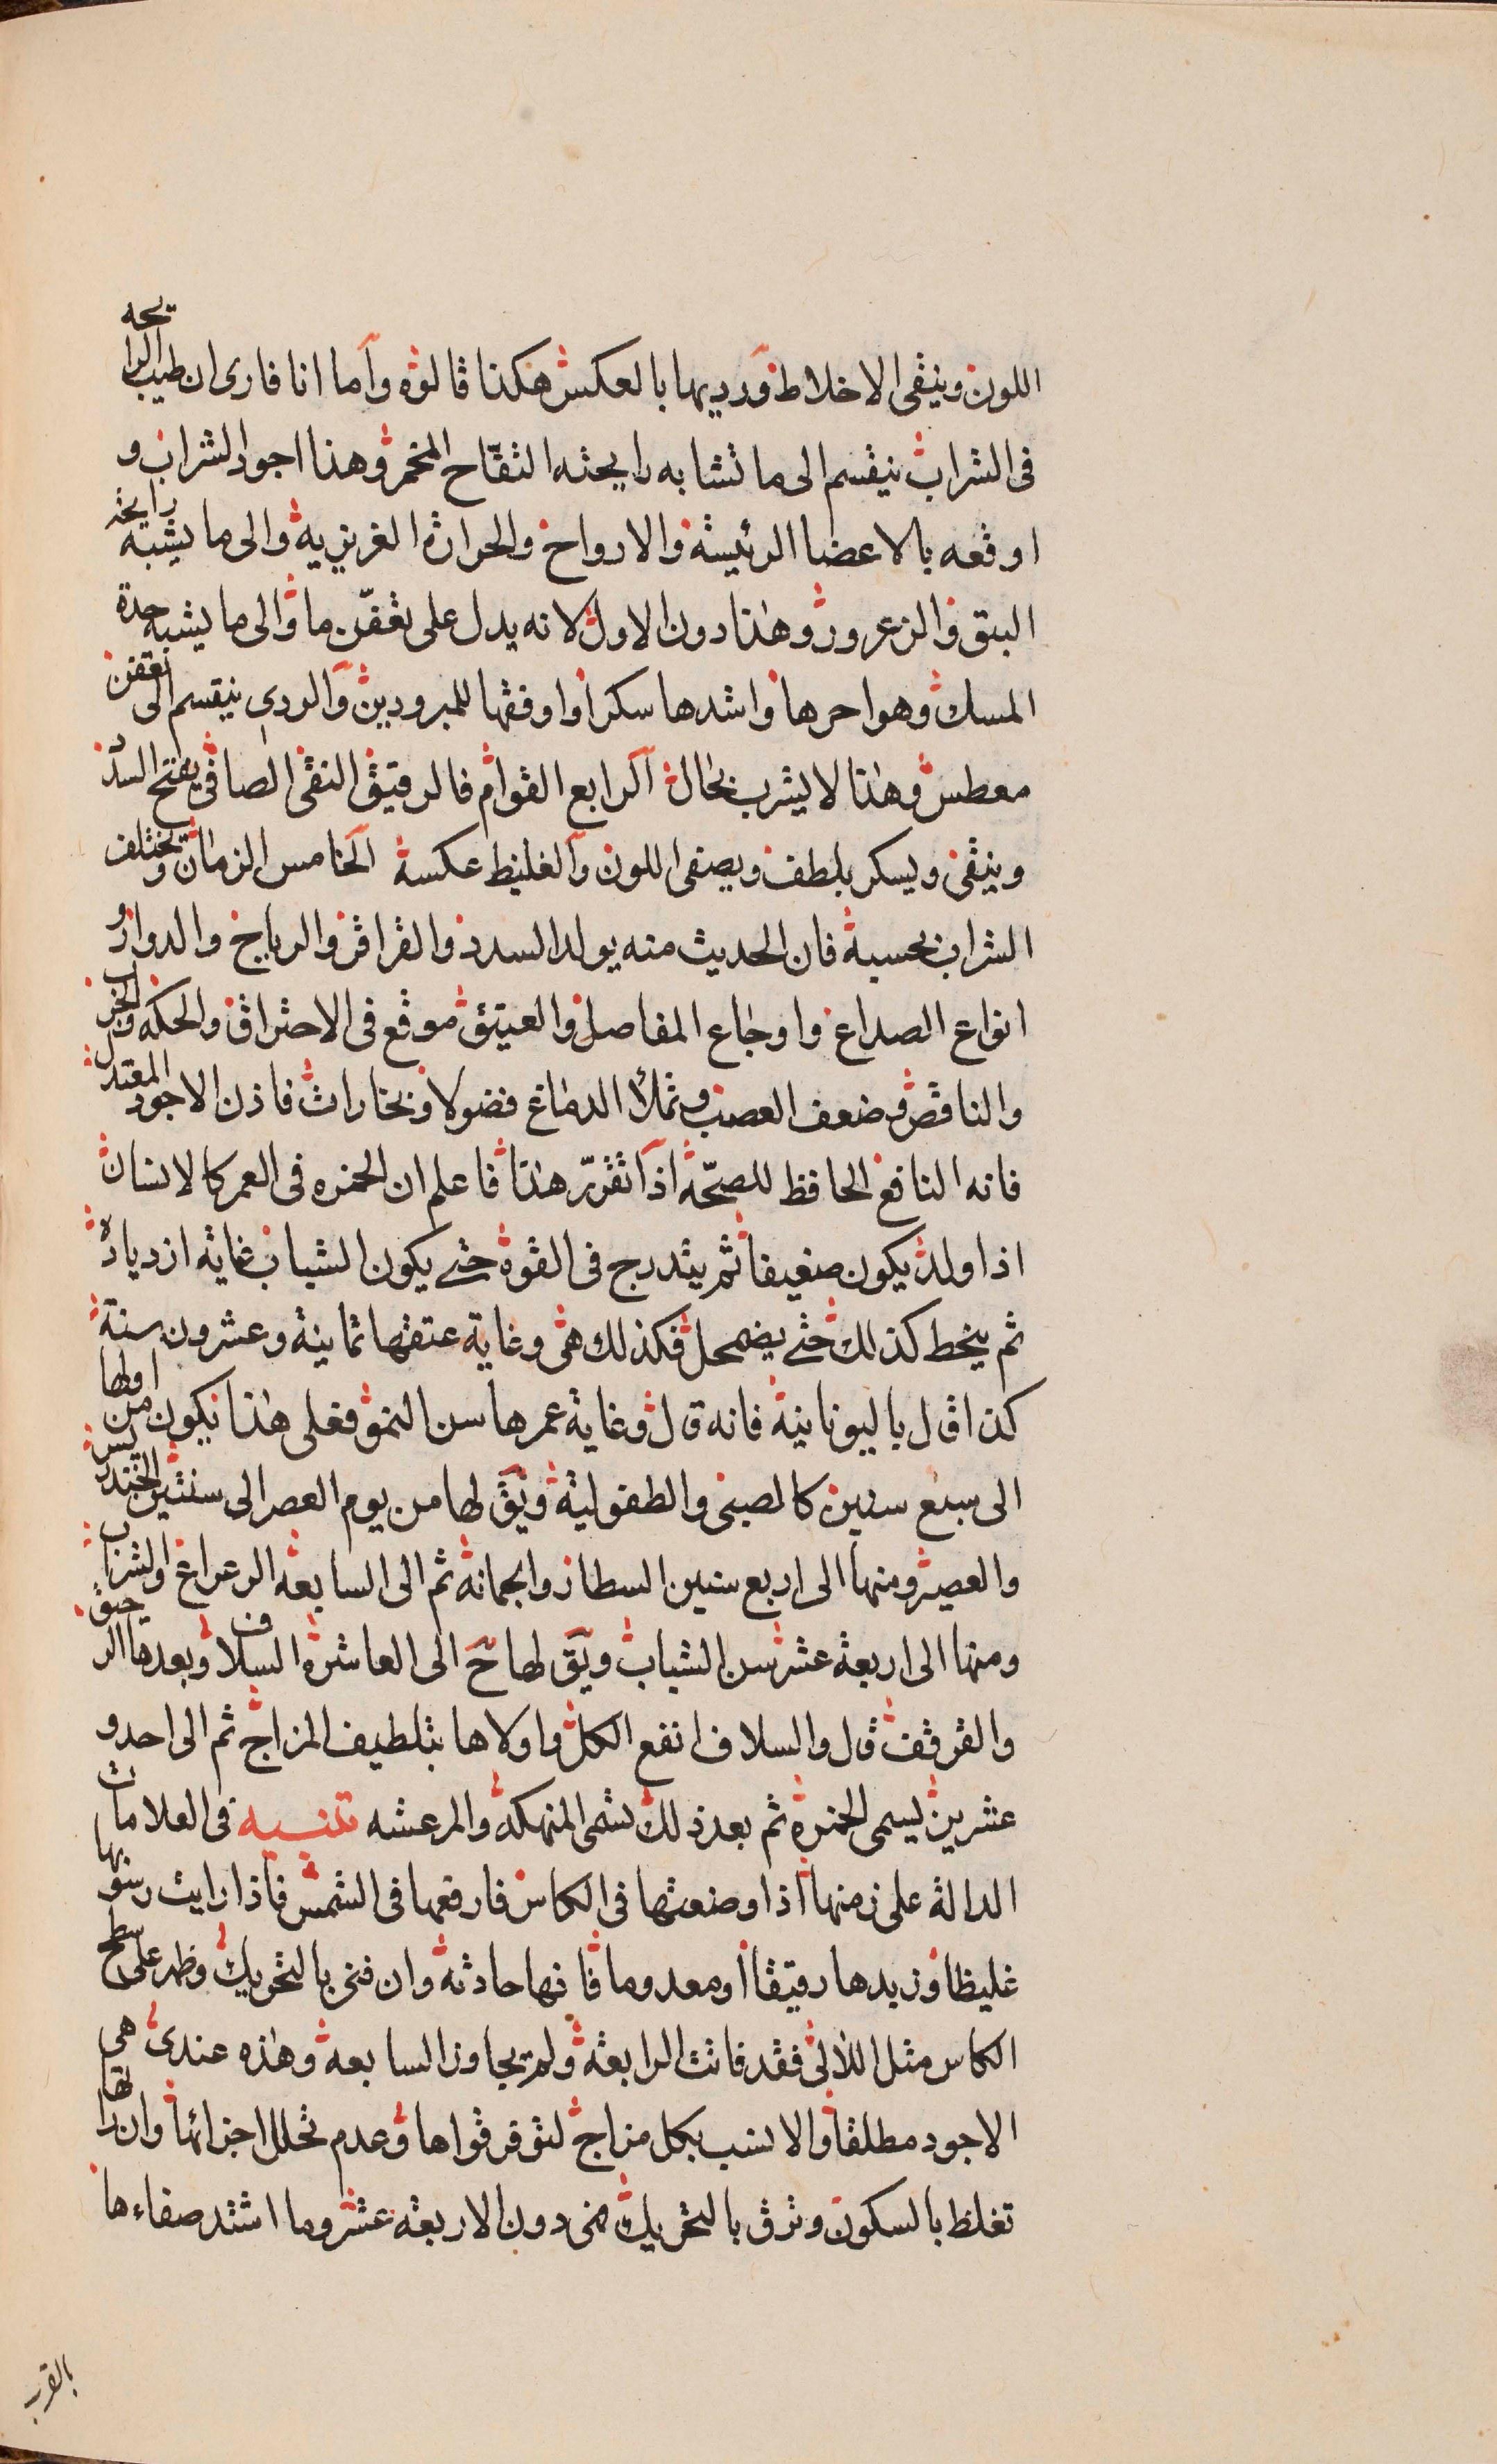 اللون وينقى الاخلاط ورديها بالعكس هكذا قالوه واما انا فارى ان طيب الرايحه
فى الشراب ينقسم الى ما تشابه رايحته التفاح المخمر وهذا اجود الشراب و
اوقعه بالاعضا الرئيسة والارواح والحرارة الغريزية والى ما يشبه رايحة
البق والزعرور وهذا دون الاول لانه يدل على تعفن ما والى ما يشبه حدة
المسك وهو احرها واشدها سكرا واوفقها للمبرودين والردى ينقسم الى تعفن
معطس وهذا لا يشرب بحال الرابع القوام فالرقيق النقى الصافى يفتح السدد
وينقى ويسكر بلطف ويصفى اللون والغليظ عكسة الخامس الزمان ويختلف
الشراب بحسبة فان الحديث منه يولد السدد والقراقر والرياح والدوار و
انواع الصداع واوجاع المفاصل والعتيق موقع فى الاحتراق والحكه والجرب
والناقص وضعف العصب وتملأ الدماغ فضولا وبخارات فاذن الاجود المعتدل
فانه النافع الحافظ للصحة اذا تقرر هذا فاعلم ان الخمره فى العمر كالانسان
اذا ولد يكون ضعيفا ثم يتدرج فى القوة حتى يكون الشباب غاية ازدياده
ثم ينحط كذلك حتى يضمحل فكذلك هى وغاية عتقها ثمانية وعشرون سنة
كذا قال باليونانية فانه قال وغاية عمرها سن النمو فعلى هذا يكون من اولها
الى سبع سنين كالصبى والطفولية ويق لها من يوم العصر الى سنتين الخندريس
والعصير ومنها الى اربع سنين السطاز والجمانة ثم الى السابعة الرعراع او الشراب
ومنها الى اربعة عشر سن الشباب ويق لها ح الى العاشرة السلاف وبعدها الرحيق
والقرقف قال والسلاف انفع الكل واولاها بتلطيف المزاج ثم الى احد و
عشرين يسمى الخمرة ثم بعد ذلك تسمى المنهكة والمرعشه تنبيه فى العلامات
الدالة على زمنها اذا وضعتها فى الكاس فارفعها فى الشمس فاذا رايت رسوبها
غليظا وزبدها رقيقا او معدوما فانها حادثة وان فنى بالتحويك وظهر على سطح
الكاس مثل اللالى فقد فاتت الرابعة ولم يجاوز السابعة وهذه عندى هى
الاجود مطلقا والانسب بكل مزاج لتوفر قواها وعدم تحلل اجزائها وان رايتها
تغلظ بالسكون وترق بالتحريك فهى دون الاربعة عشر وما اشتد صفاءها
بالقرب